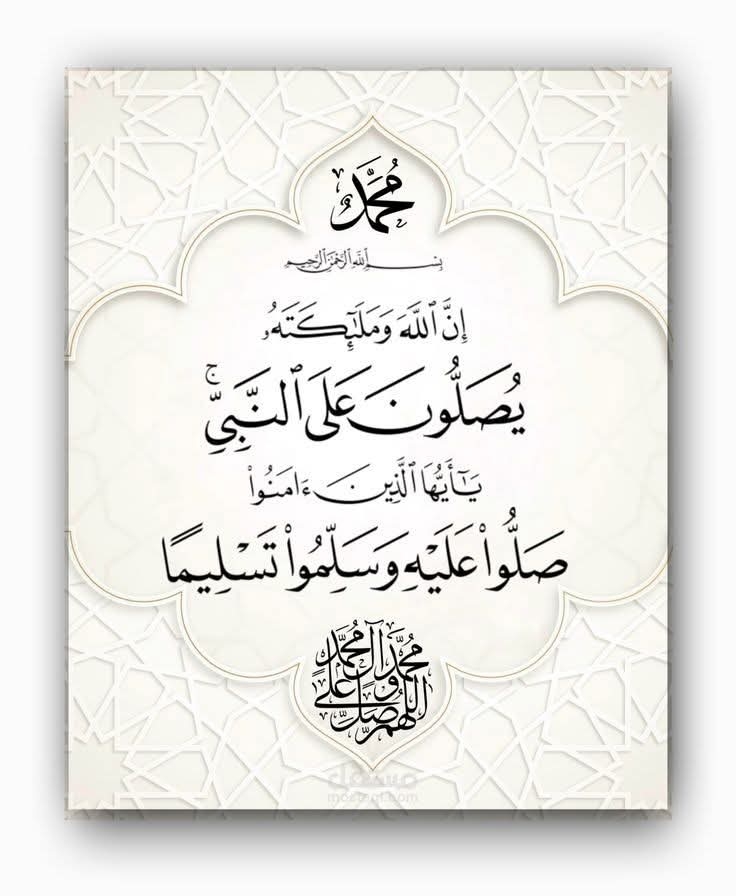 مُحَمَّد
بِسْمِ اللَّهِ الرَّحْمَٰنِ الرَّحِيمِ
إِنَّ ٱللَّهَ وَمَلَـٰٓئِكَتَهُۥ
يُصَلُّونَ عَلَى ٱلنَّبِىِّ ۚ
يَـٰٓأَيُّهَا ٱلَّذِينَ ءَامَنُوا۟
صَلُّوا۟ عَلَيْهِ وَسَلِّمُوا۟ تَسْلِيمًا
اللهم صل على محمد وآل محمد
مستقل
mostaql.com